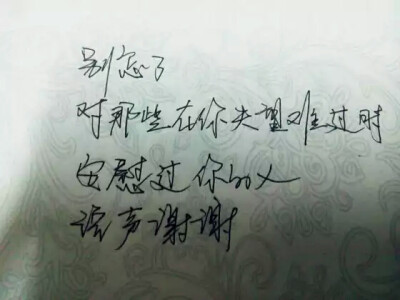 别忘了
对那些在你失望难过时
安慰过你的人
说声谢谢